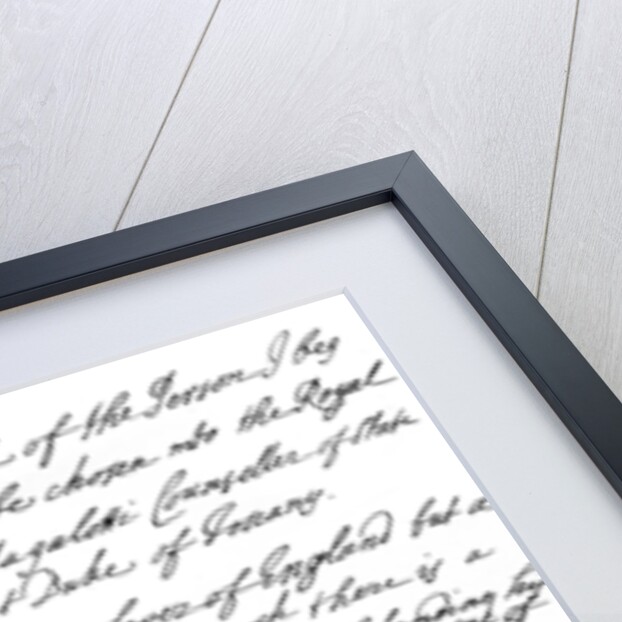 of the Person I beg
be chosen into the Royal
Magalotti Counseller of State
Duke of Tuscany.
of England but a
there is a
by
of